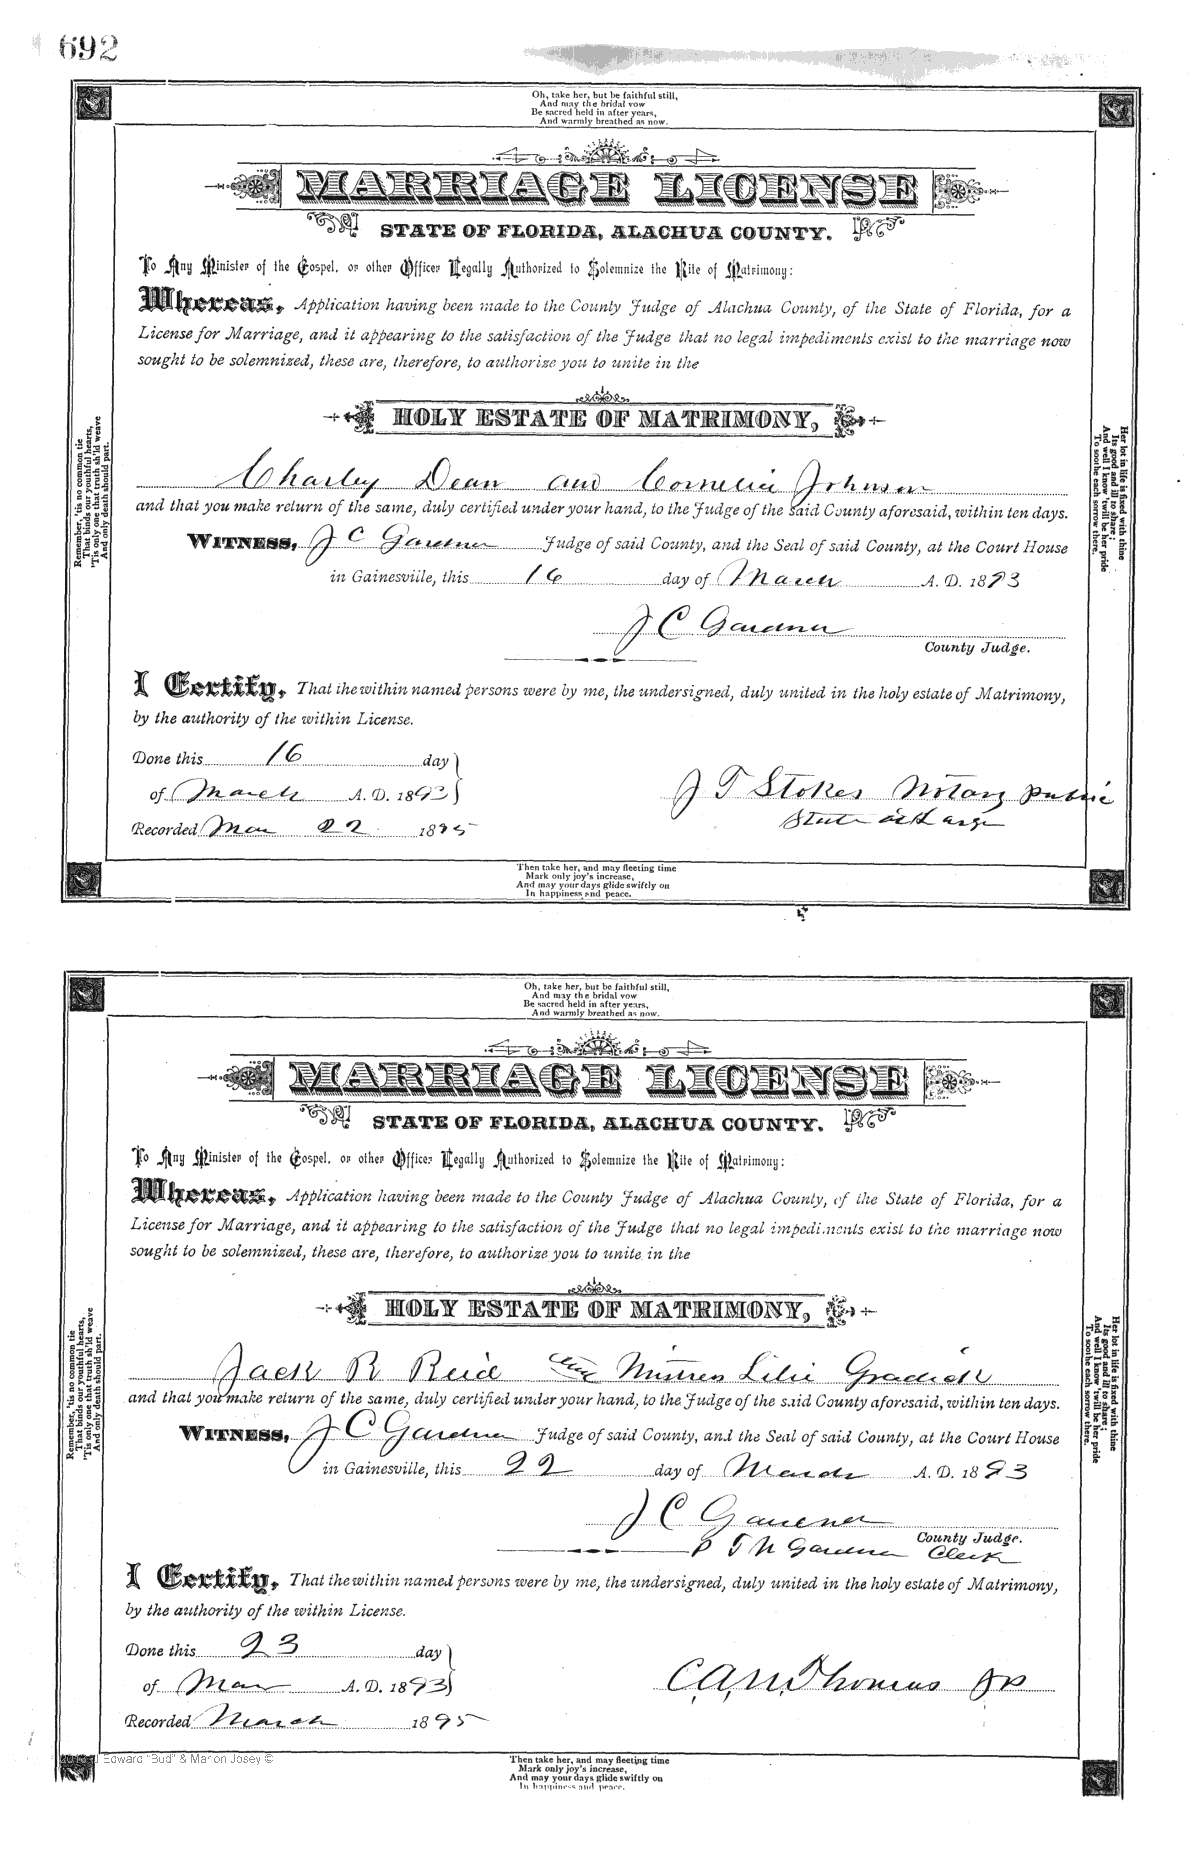 692
Oh, take her, but be faithful still,
And may the bridal vow
Be sacred held in after years,
And warmly breathed as now.
MARRIAGE LICENSE
STATE OF FLORIDA, ALACHUA COUNTY.
To Any Minister of the Gospel, or other Officer Legally Authorized to Solemnize the Rite of Matrimony:
Whereas, Application having been made to the County Judge of Alachua County, of the State of Florida, for a
License for Marriage, and it appearing to the satisfaction of the Judge that no legal impediments exist to the marriage now
sought to be solemnized, these are, therefore, to authorize you to unite in the
HOLY ESTATE OF MATRIMONY,
Charley Dean and Cornelia Johnson
and that you make return of the same, duly certified under your hand, to the Judge of the said County aforesaid, within ten days.
WITNESS, J C Gardner Judge of said County, and the Seal of said County, at the Court House
in Gainesville, this 16 day of March A. D. 1893
J C Gardner
County Judge.
I Certify, That the within named persons were by me, the undersigned, duly united in the holy estate of Matrimony,
by the authority of the within License.
Done this 16 day
of March A. D. 1893
J T Stokes Notary public
State at Large
Recorded Mar 22 1895
Remember, 'tis no common tie
That binds our youthful hearts,
'Tis only one that truth sh'ld weave
And only death should part.
Her lot in life is fixed with thine
Its good and ill to share;
And well I know 'twill be her pride
To soothe each sorrow there.
Then take her, and may fleeting time
Mark only joy's increase,
And may your days glide swiftly on
In happiness and peace.
Oh, take her, but be faithful still,
And may the bridal vow
Be sacred held in after years,
And warmly breathed as now.
MARRIAGE LICENSE
STATE OF FLORIDA, ALACHUA COUNTY.
To Any Minister of the Gospel, or other Officer Legally Authorized to Solemnize the Rite of Matrimony:
Whereas, Application having been made to the County Judge of Alachua County, of the State of Florida, for a
License for Marriage, and it appearing to the satisfaction of the Judge that no legal impediments exist to the marriage now
sought to be solemnized, these are, therefore, to authorize you to unite in the
HOLY ESTATE OF MATRIMONY,
Jack R Reid and Mistress Lilie Gradick
and that you make return of the same, duly certified under your hand, to the Judge of the said County aforesaid, within ten days.
WITNESS, J C Gardner Judge of said County, and the Seal of said County, at the Court House
in Gainesville, this 22 day of March A. D. 1893
J C Gardner
County Judge.
P T N Gardner Clerk
I Certify, That the within named persons were by me, the undersigned, duly united in the holy estate of Matrimony,
by the authority of the within License.
Done this 23 day
of Mar A. D. 1893
C.A.N. Thomas JP
Recorded March 1895
Remember, 'tis no common tie
That binds our youthful hearts,
'Tis only one that truth sh'ld weave
And only death should part.
Her lot in life is fixed with thine
Its good and ill to share;
And well I know 'twill be her pride
To soothe each sorrow there.
Edward "Bud" & Marion Josey ©
Then take her, and may fleeting time
Mark only joy's increase,
And may your days glide swiftly on
In happiness and peace.